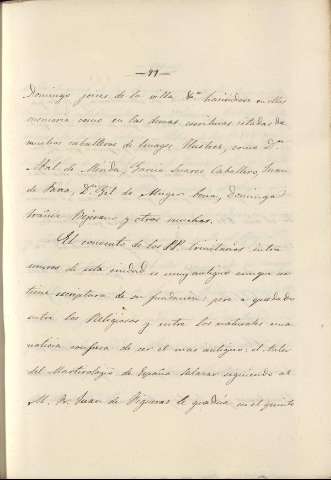 — 99 —
Domingo jueces de la villa &ª haciendose en ellas
memoria como en las demas escrituras citadas de
muchos caballeros de linages ilustres, como Dⁿ
Abal de Merida, Garcia Suarez Caballero, Juan
de Faria, Dⁿ Gil de Muger bona, Domingo
Bejarano y otros muchos.
El convento de los PP. trinitarios intra
muros de esta ciudad es muy antiguo aunque no
tiene escriptura de su fundacion; pero a quedado
entre los Religiosos y entre los naturales una
noticia confusa de ser el mas antiguo: el autor
del Martirologio de España Salazar siguiendo al
M. Fr. Juan de Figueras le gradúa en el quinto